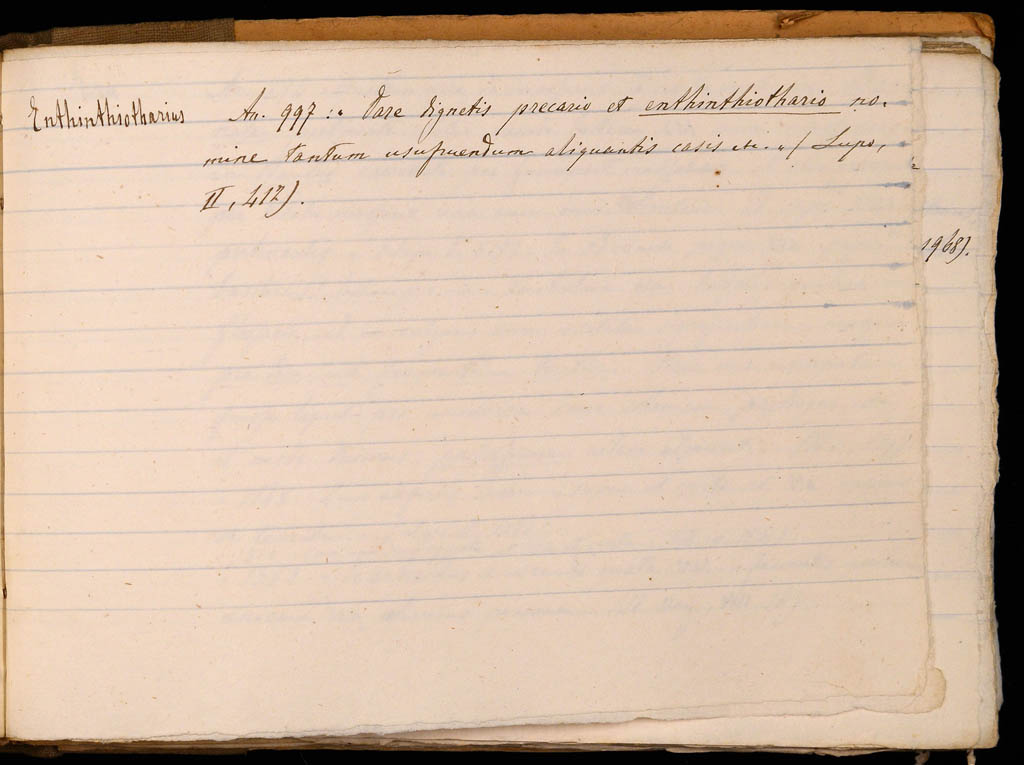 Enthinthiotharius An. 997 :" Dare dignetis precario et enthinthiothario no-
mine tantum usufruendum aliquantis casis etc. " (Lupo,
II, 412).
1968).